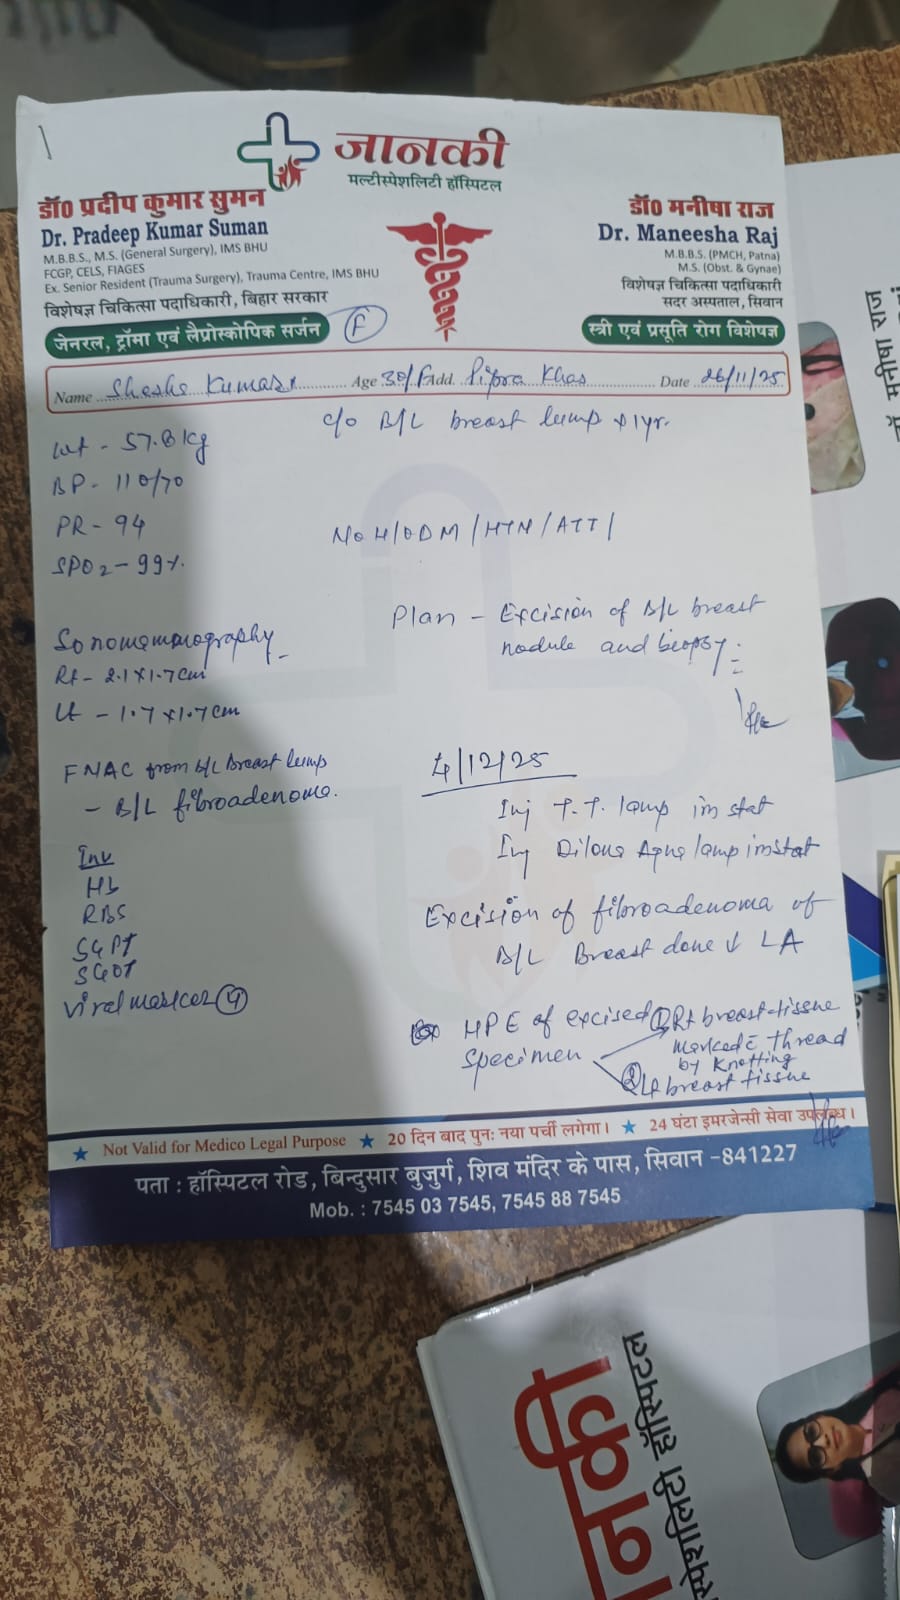 जानकी
मल्टीस्पेशलिटी हॉस्पिटल
डॉ0 प्रदीप कुमार सुमन
Dr. Pradeep Kumar Suman
M.B.B.S., M.S. (General Surgery), IMS BHU
FCGP, CELS, FIAGES
Ex. Senior Resident (Trauma Surgery), Trauma Centre, IMS BHU
विशेषज्ञ चिकित्सा पदाधिकारी, बिहार सरकार
जेनरल, ट्रॉमा एवं लैप्रोस्कोपिक सर्जन
F
डॉ0 मनीषा राज
Dr. Maneesha Raj
M.B.B.S. (PMCH, Patna)
M.S. (Obst. & Gynae)
विशेषज्ञ चिकित्सा पदाधिकारी
सदर अस्पताल, सिवान
स्त्री एवं प्रसूति रोग विशेषज्ञ
Name Kumari Age 30/F Add. Pipra Khas Date 26/11/25
c/o B/L breast lump x 1yr.
Wt - 57.8 kg
BP - 110/70
PR - 94
SPO2 - 99%
No H/O DM/HTN/ATT/
Plan - Excision of B/L breast
nodule and biopsy
Sonomamography
Rt - 2.1x1.7cm
Lt - 1.7x1.7cm
FNAC from B/L Breast lump
- B/L fibroadenoma.
Inv
Hb
RBS
SGPT
SGOT
Viral marker
4/12/25
Inj T.T. 1amp im stat
Inj Aqua 1amp im stat
Excision of fibroadenoma of
B/L Breast done ↓ LA
HPE of excised specimen
① Rt breast tissue
marked c̄ thread
by Knotting
② Lt breast tissue
★ Not Valid for Medico Legal Purpose ★ 20 दिन बाद पुनः नया पर्ची लगेगा। ★ 24 घंटा इमरजेन्सी सेवा उपलब्ध।
पता : हॉस्पिटल रोड, बिन्दुसार बुजुर्ग, शिव मंदिर के पास, सिवान -841227
Mob. : 7545 03 7545, 7545 88 7545
मनीषा राज
नकी
हॉस्पिटल